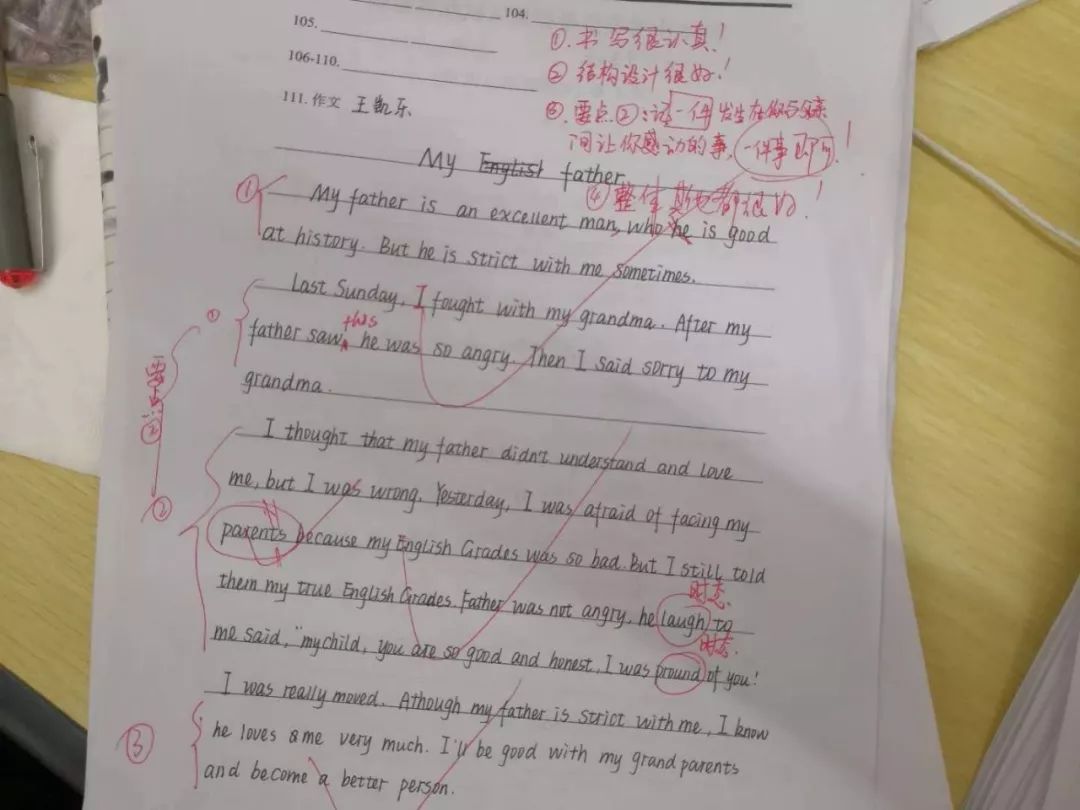 104.
105.
①.书写很认真!
106-110.
② 结构设计很好!
111.作文 王凯乐
③.要点②:记一件发生在你与父亲
间让你感动的事,一件事即可!
My English father
④整体 都很好!
① My father is an excellent man, who he is good
at history. But he is strict with me sometimes.
Last Sunday, I fought with my grandma. After my
① father saw this he was so angry. Then I said sorry to my
grandma.
②
I thought that my father didn't understand and love
② me, but I was wrong. Yesterday, I was afraid of facing my
parents because my English Grades was so bad. But I still told
时态.
them my true English Grades. Father was not angry, he laugh to
时态.
me said, "my child, you are so good and honest, I was pround of you!
I was really moved. Athough my father is strict with me, I know
③ he loves me very much. I'll be good with my grandparents
and become a better person.